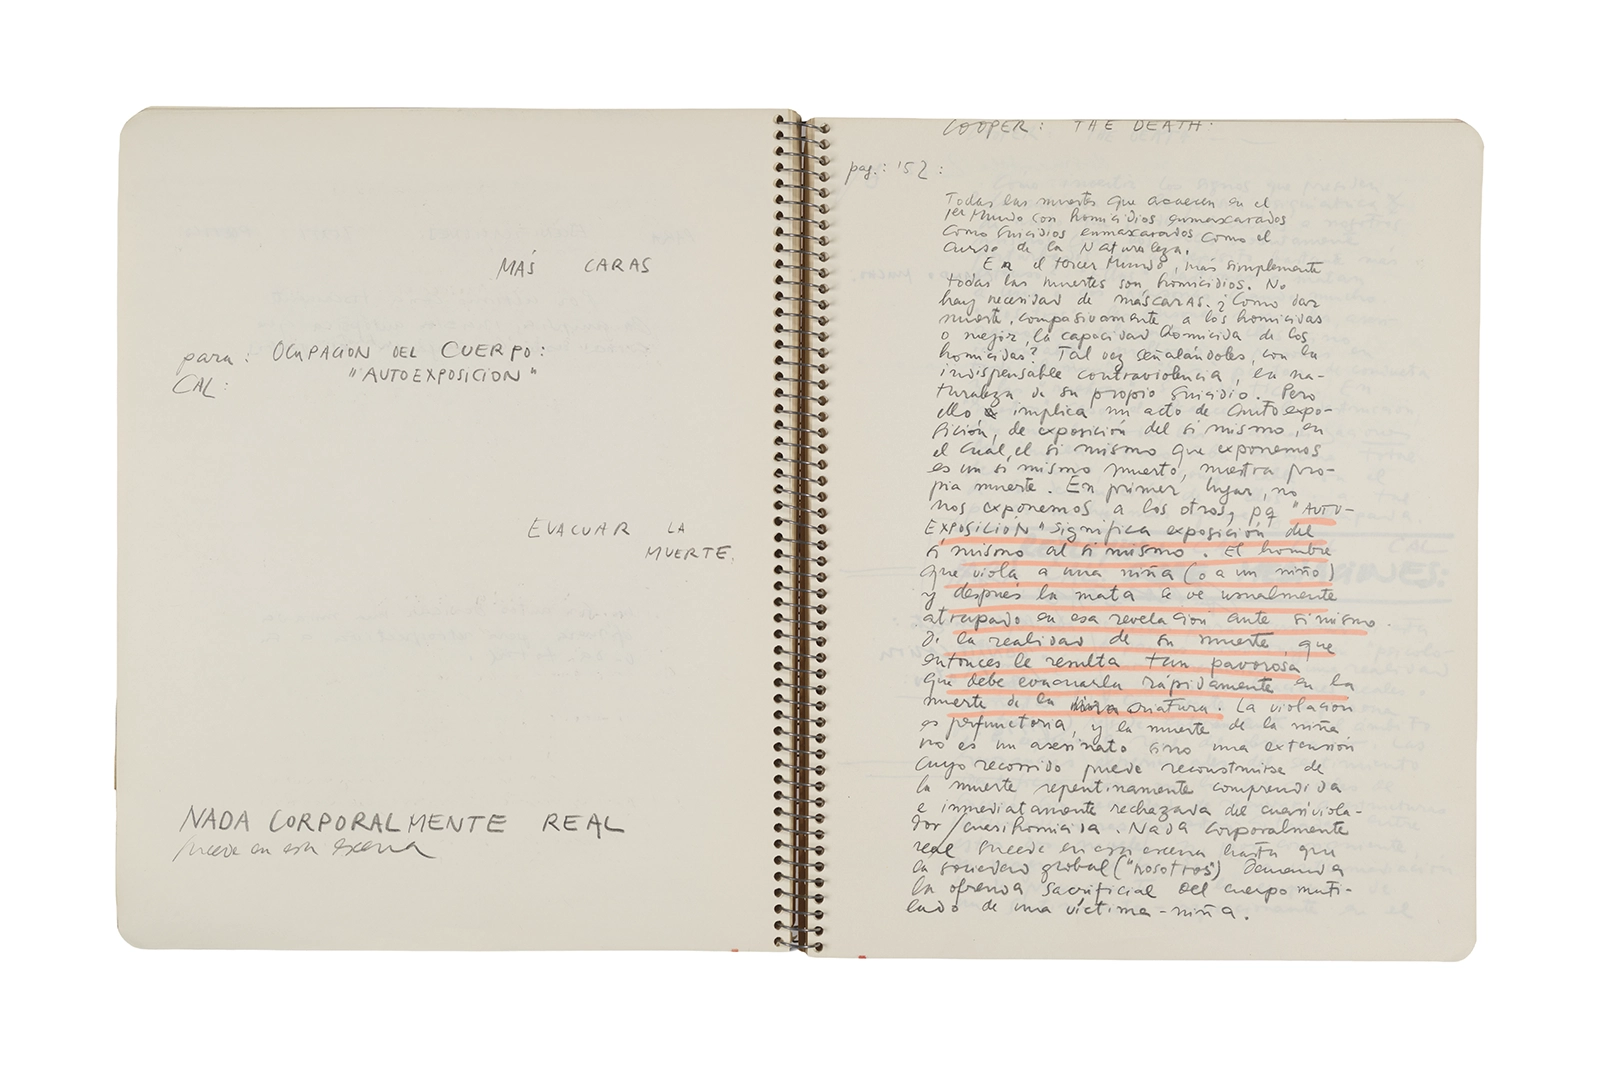 MÁS CARAS
para: OCUPACION DEL CUERPO:
CAL: "AUTOEXPOSICION"
EVACUAR LA
MUERTE.
NADA CORPORALMENTE REAL
sucede en esta escena
COOPER: THE DEATH:
pag.: 152:
Todas las muertes que acaecen en el
1er Mundo son homicidios enmascarados
como suicidios enmascarados como el
curso de la Naturaleza.
En el tercer Mundo, más simplemente
todas las muertes son homicidios. No
hay necesidad de máscaras. ¿Cómo dar
muerte, compasivamente a los homicidas
o mejor, la capacidad homicida de los
homicidas? Tal vez señalándoles, con la
indispensable contraviolencia, la na-
turaleza de su propio suicidio. Pero
ello implica un acto de autoexpo-
sición, de exposición del sí mismo, en
el cual, el sí mismo que exponemos
es un sí mismo muerto, nuestra pro-
pia muerte. En primer lugar, no
nos exponemos a los otros, pq "AUTO-
EXPOSICIÓN" significa exposición del
sí mismo al sí mismo. El hombre
que viola a una niña (o a un niño)
y después la mata se ve usualmente
atrapado en esa revelación ante sí mismo
de la realidad de su muerte, que
entonces le resulta tan pavorosa
que debe evacuarla rápidamente en la
muerte de la criatura. La violación
es perfunctoria, y la muerte de la niña
no es un asesinato sino una extensión
cuyo recorrido puede reconstruirse de
la muerte repentinamente comprendida
e inmediatamente rechazada del cuasiviola-
dor/cuasihomicida. Nada corporalmente
real sucede en esa escena hasta que
la sociedad global ("nosotros") demanda
la ofrenda sacrificial del cuerpo muti-
lado de una víctima-niña.